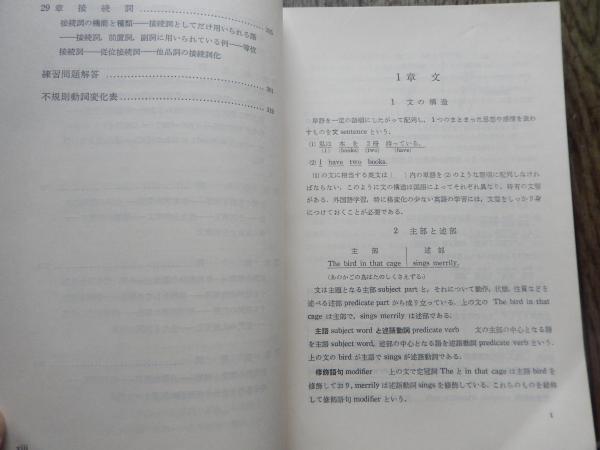 29章 接続詞
接続詞の機能と種類——接続詞としてだけ用いられる語
——接続詞，前置詞，副詞に用いられている例——等位
接続詞——従位接続詞——他品詞の接続詞化
練習問題解答
不規則動詞変化表
viii
1章 文
1 文の構造
単語を一定の語順にしたがって配列し，1つのまとまった思想や感情を表わ
すものを文 sentence という。
(1) 私は 本を 2冊 持っている。
(I) (books) (two) (have)
(2) I have two books.
(1)の文に相当する英文は( )内の単語を(2)のような語順に配列しなけれ
ばならない。このように文の構造は国語によってそれぞれ異なり，特有の文型
がある。外国語学習，特に格変化の少ない英語の学習には，文型をしっかり身
につけておくことが必要である。
2 主部と述部
主部 述部
The bird in that cage sings merrily.
(あのかごの鳥はたのしくさえずる)
文は主題となる主部 subject part と，それについて動作，状態，性質などを
述べる述部 predicate part から成り立っている。上の文の The bird in that
cage は主部で，sings merrily は述部である。
主語 subject word と述語動詞 predicate verb 文の主部の中心となる語
を主語 subject word，述部の中心となる語を述語動詞 predicate verb という。
上の文の bird が主語で sings が述語動詞である。
修飾語句 modifier 上の文で定冠詞 The と in that cage は主語 bird を
修飾しており，merrily は述語動詞 sings を修飾している。これらのものを総称
して修飾語句 modifier という。
1